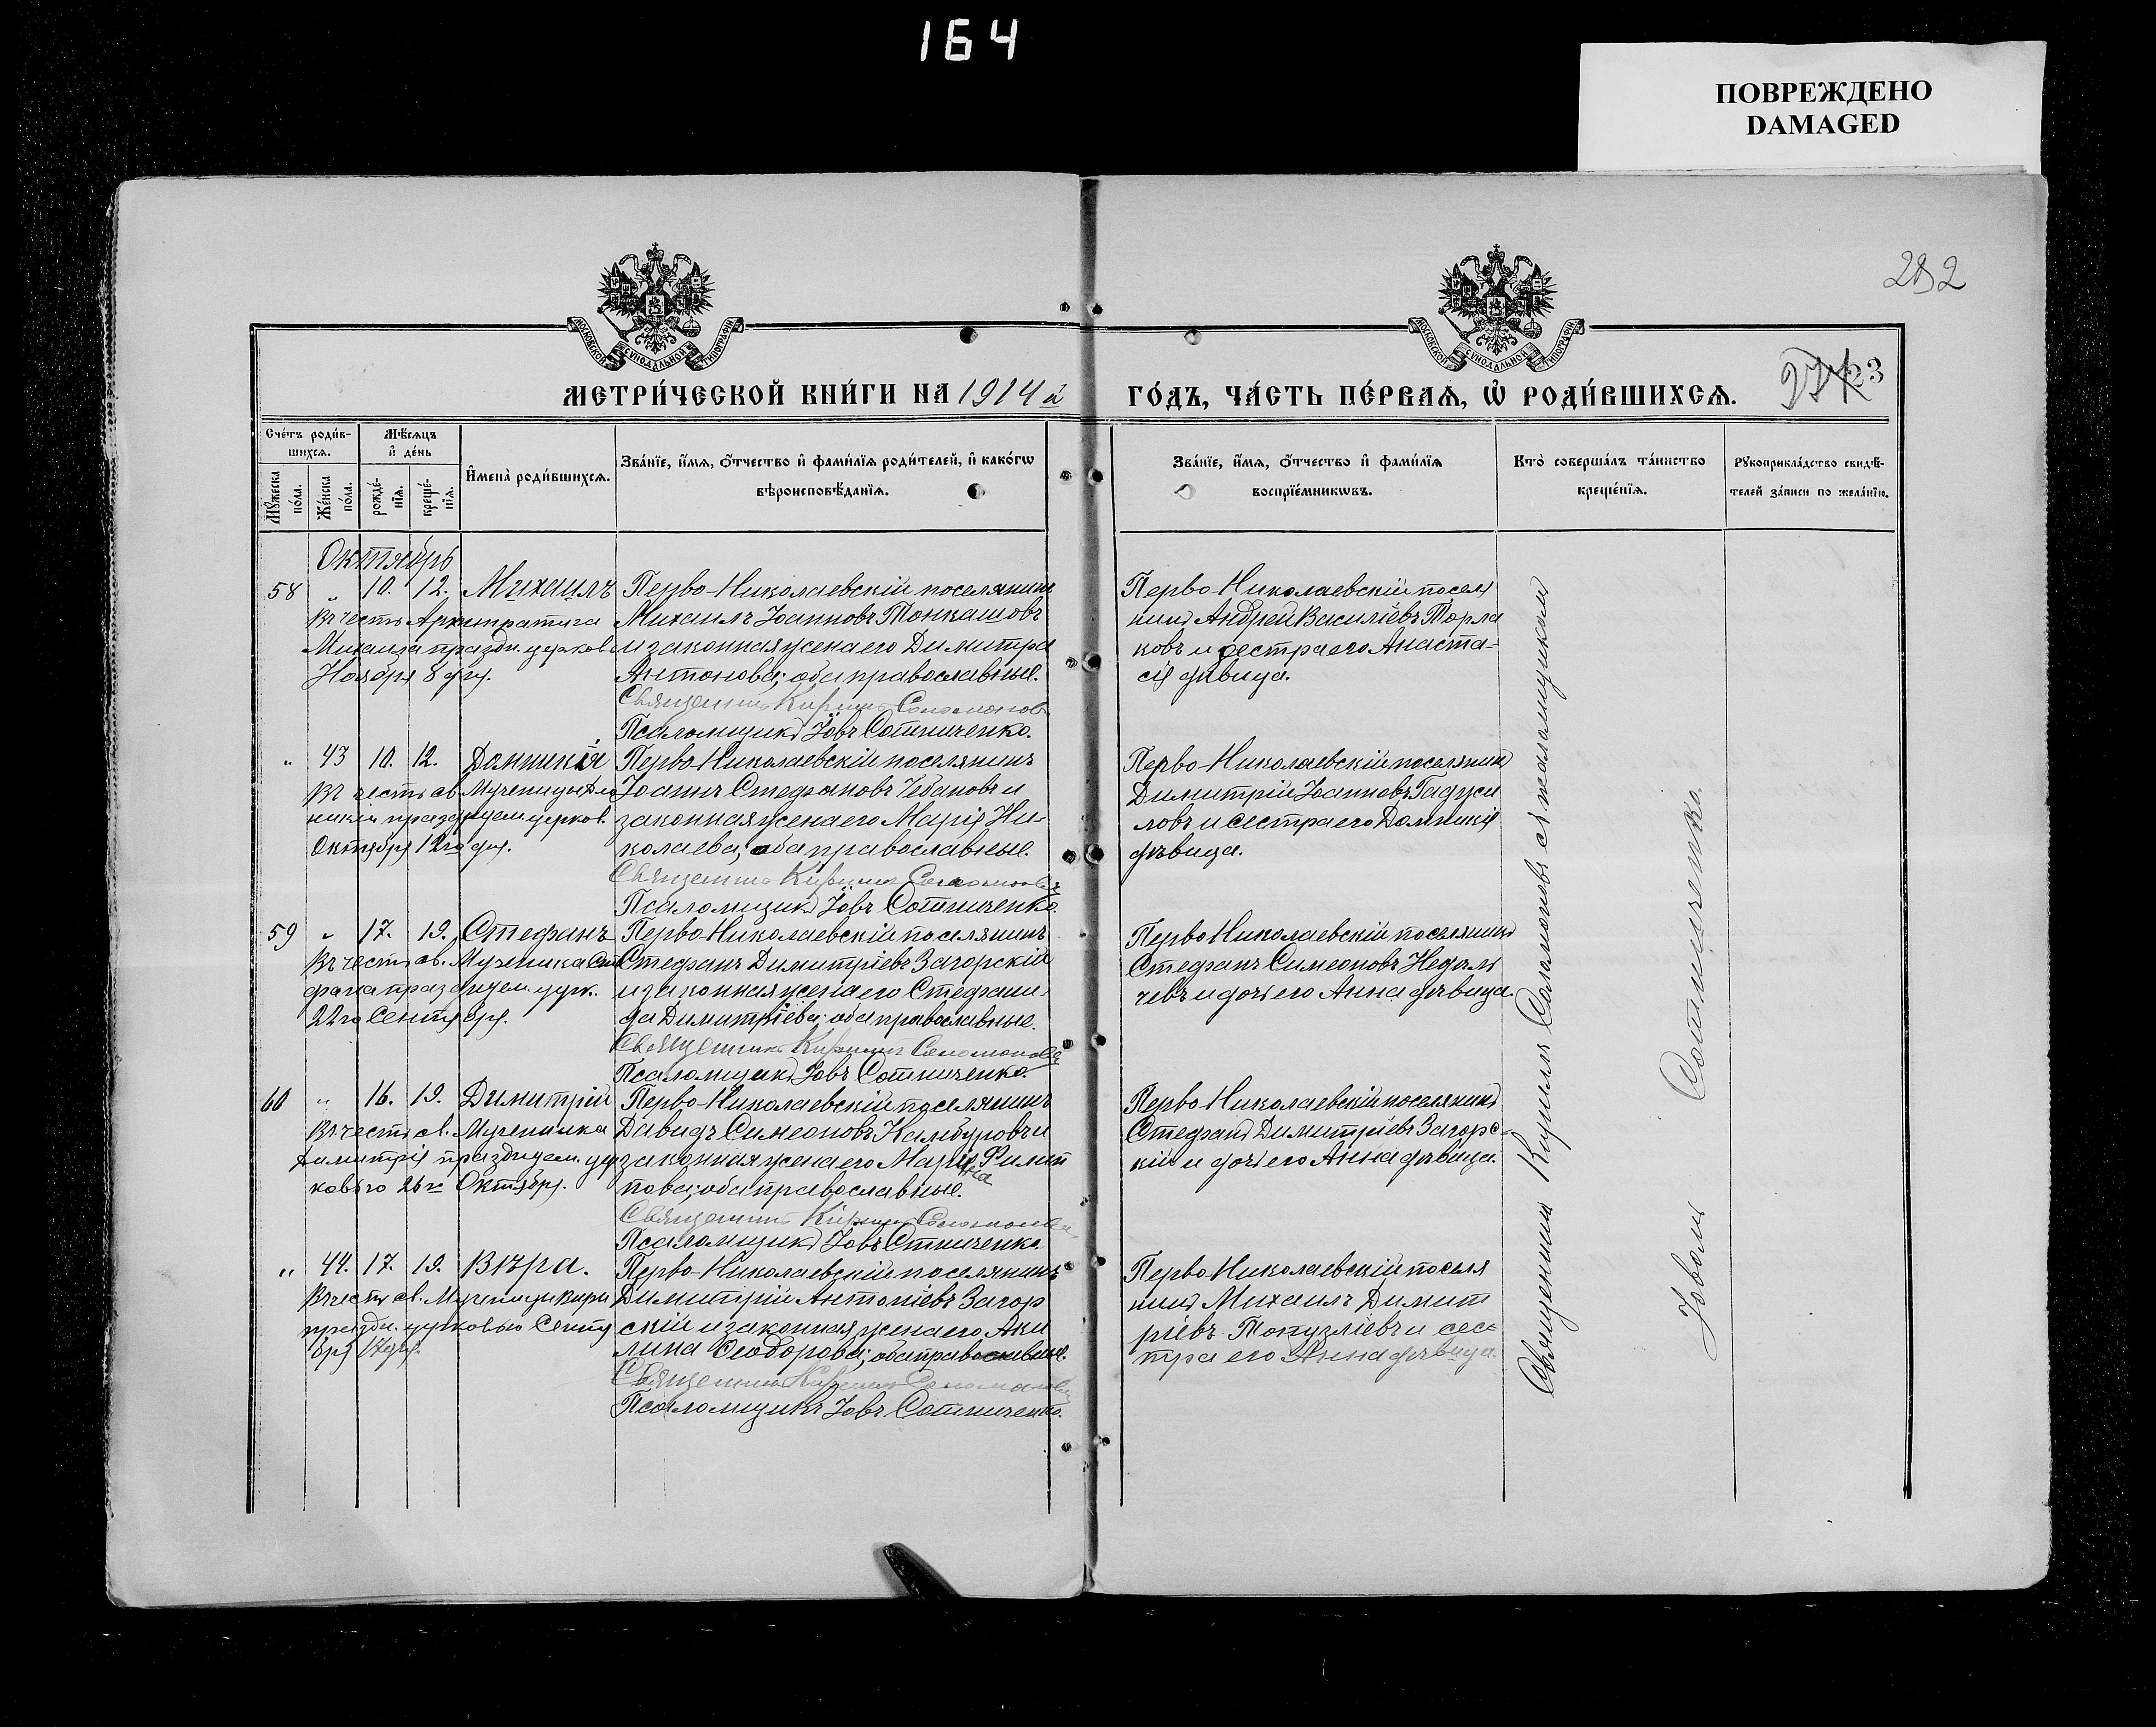 164
ПОВРЕЖДЕНО
DAMAGED
282
МОСКОВСКОЙ СУНОДАЛЬНОЙ ТИПОГРАФІИ
МОСКОВСКОЙ СУНОДАЛЬНОЙ ТИПОГРАФІИ
МЕТРИ́ЧЕСКОЙ КНИ́ГИ НА 1914 й
ГО́ДЪ, ЧА́СТЬ ПЕ́РВАѦ, Ѡ҆ РОДИ́ВШИХСѦ.
23
Сче́тъ роди́в-
шихсѧ.
Мѣ́сѧцъ
и҆ де́нь
Мꙋ́жеска
по́ла.
Же́нска
по́ла.
рожде́-
нїѧ.
креще́-
нїѧ.
И҆мена̀ роди́вшихсѧ.
Зва́нїе, и҆́мѧ, ѻ҆́тчество и҆ фамилїѧ роди́телей, и҆ како́гѡ
вѣроисповѣ́данїѧ.
Зва́нїе, и҆́мѧ, ѻ҆́тчество и҆ фамилїѧ
воспрїе́мникѡвъ.
Кто̀ соверша́лъ та́инство
креще́нїѧ.
Рꙋкоприкла́дство свидѣ́-
телей за́писи по жела́нїю.
Октябрь
58 " 10. 12. Михаилъ
Въ честь Архистратига
Михаила праздн. церков.
Ноября 8 дня.
Перво-Николаевскій поселянинъ
Михаилъ Іоанновъ Тонкашовъ
и законная жена его Димитра
Антонова; оба православные.
Священникъ Кириллъ Соломоновъ
Псаломщикъ Іовъ Сотниченко.
Перво-Николаевскій поселя
нинъ Андрей Василіевъ Торла
ковъ и сестра его Анаста-
сія дѣвица.
" 43 10. 12. Домникія
Въ честь св. Мученицы До
никіи празднуем. церков.
Октября 12го дня.
Перво-Николаевскій поселянинъ
Іоаннъ Стефановъ Чебановъ и
законная жена его Марія Ни-
колаева; оба православные.
Священникъ Кириллъ Соломоновъ
Псаломщикъ Іовъ Сотниченко.
Перво-Николаевскій поселянинъ
Димитрій Іоанновъ Гаджи
ловъ и сестра его Домникія
дѣвица.
59 " 17. 19. Стефанъ
Въ честь св. Мученика Сте
фана празднуем. церк.
22го Сентября.
Перво-Николаевскій поселянинъ
Стефанъ Димитріевъ Загорскій
и законная жена его Стефани-
да Димитріева; оба православные.
Священникъ Кириллъ Соломоновъ
Псаломщикъ Іовъ Сотниченко.
Перво Николаевскій поселянинъ
Стефанъ Симеоновъ Недѣль
чевъ и дочь его Анна дѣвица.
60 " 16. 19. Димитрій
Въ честь св. Мученика
Димитрія празднуем. цер
ковью 26го Октября.
Перво-Николаевскій поселянинъ
Давидъ Симеоновъ Камбуровъ и
законная жена его Марія Филип
пова; оба православные.
Священникъ Кириллъ Соломоновъ
Псаломщикъ Іовъ Стниченко
Перво Николаевскій поселянинъ
Стефанъ Димитріевъ Загорс-
кій и дочь его Анна дѣвица.
" 44. 17. 19. Вѣра.
Въ честь св. Мученицы Вѣры
праздн. церковью Сентя
бря 17 дня.
Перво-Николаевскій поселянинъ
Димитрій Антоніевъ Загор
скій и законная жена его Аки
лина Ѳеодорова; оба православные.
Священникъ Кириллъ Соломоновъ
Псаломщикъ Іовъ Сотниченко.
Перво Николаевскій поселя
нинъ Михаилъ Димит
ріевъ Топузліевъ и сес-
тра его Анна дѣвица.
Священникъ Кириллъ Соломоновъ съ псаломщикомъ
Іовомъ Сотниченко.